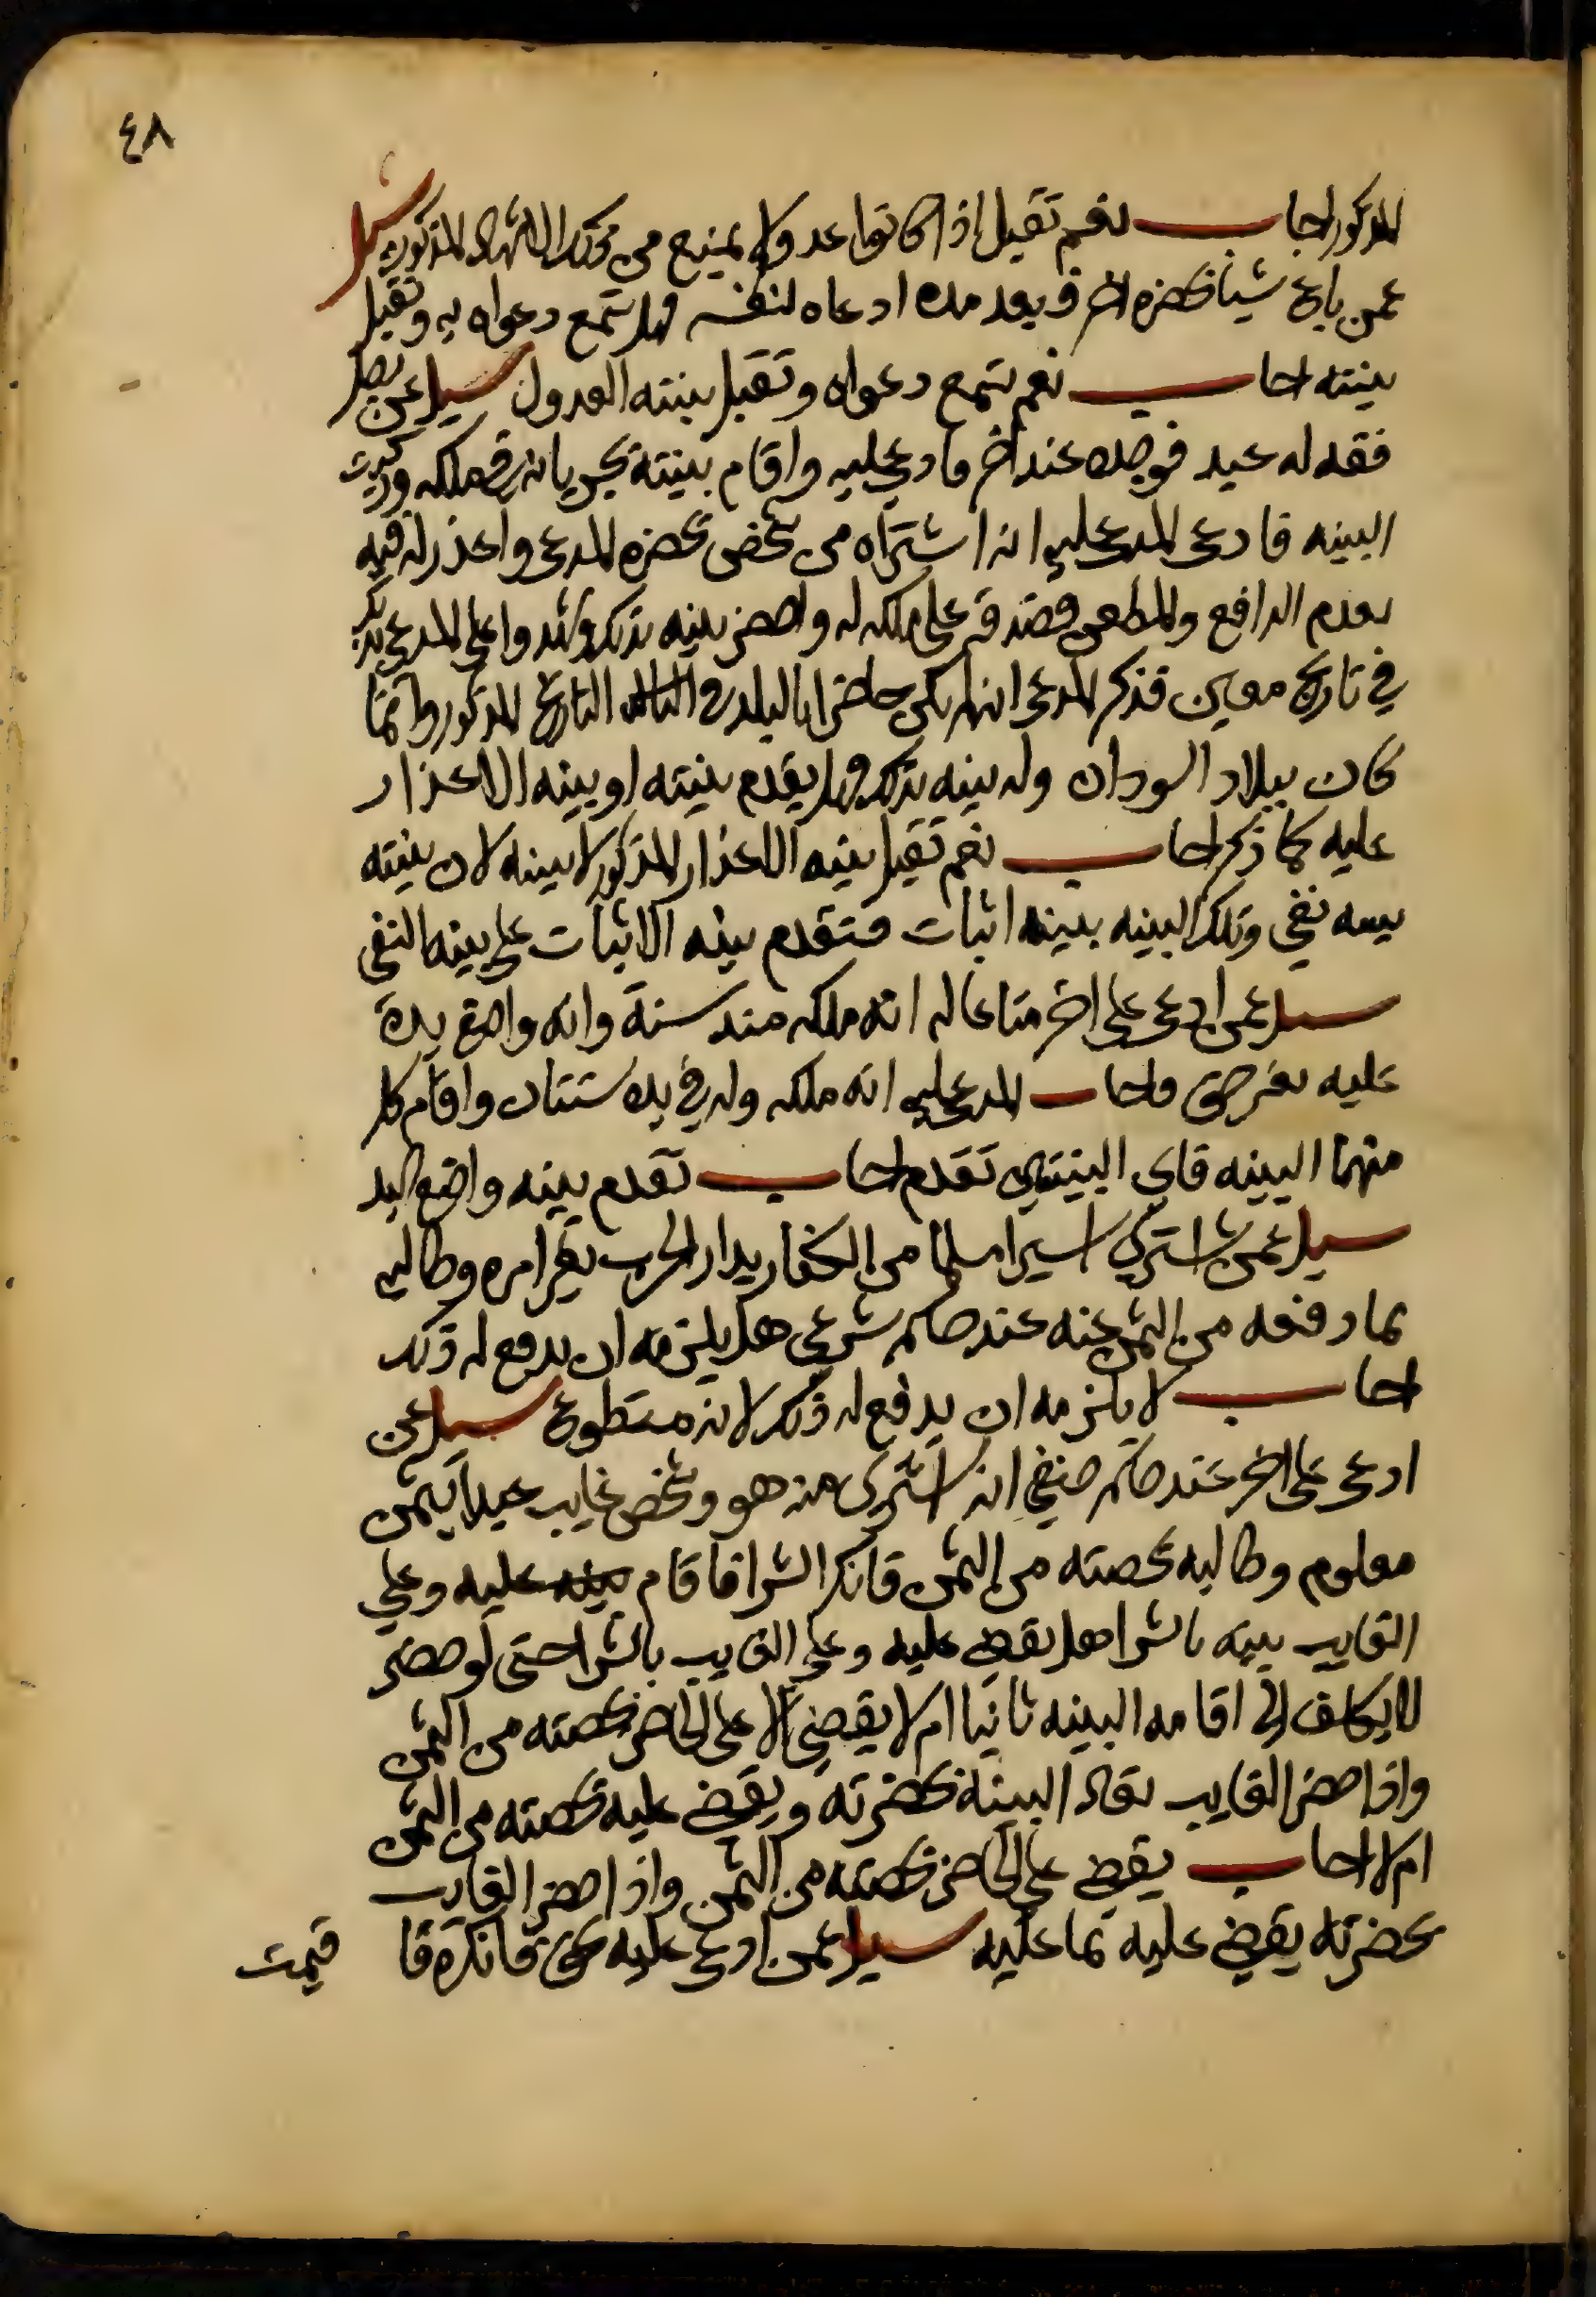 ٤٨
المذكور اجاب نعم تقبل اذا كانوا عدولا ولا يمنع من ذلك الشهاده المذكوره سيل
عمن باع شيا بحضرة اخر وبعد مده ادعاه لنفسه فهل تسمع دعواه به وتقبل
بينته اجاب نعم تسمع دعواه وتقبل بينته العدول سيل عن رجل
فقد له عبد فوجده عند اخر فادعي عليه واقام بينته بجريانه في ملكه وزكيت
البينه فادعى المدعي عليه انه اشتراه من شخص بحضرة المدعي واعذر له فيه
بعدم الدافع والمطعن وصدقه على ملكه له واحضر بينه بذلك وشهدوا على المدعي بذلك
في تاريخ معين فذكر المدعى انه لم يكن حاضرا بالبلد في التاريخ المذكور وانما
كان ببلاد السودان وله بينه بذلك فهل يقدم بينته او بينه الاعذار
عليه كما ذكر اجاب نعم تقبل بينه الاعذار المذكور لا بينه لان بينته
بينه نفي وتلك البينه بينه اثبات فتقدم بينه الاثبات على بينه النفى
سيل عمن ادعى على اخر متاعا له انه ملكه منذ سنة وانه واضع يده
عليه بغير حق فاجاب المدعي عليه انه ملكه وله في يده سنتان واقام كل
منهما البينه فاي البينتين تقدم اجاب تقدم بينه واضع اليد
سيل عمن اشترى اسيرا مسلما من الكفار بدار الحرب بغير امره وطالبه
بما دفعه من الثمن عنه عند حاكم شرعي هل يلزمه ان يدفع له ذلك
اجاب لا يلزمه ان يدفع له ذلك لانه متطوع سيل عمن
ادعى على اخر عند حاكم حنفي انه اشترى منه هو وشخص غايب عبدا بثمن
معلوم وطالبه بحصته من الثمن فانكر الشرا فاقام بينه عليه وعلي
الغايب بينه بالشرا هل يقضي عليه وعلي الغايب بالشرا حتى لو حضر
لا يكلف الي اقامه البينه ثانيا ام لا يقضي الا على الحاضر بحصته من الثمن
واذا حضر الغايب تعاد البينة بحضرته ويقضي عليه بحصته من الثمن
ام لا اجاب يقضي على الحاضر بحصته من الثمن واذا حضر الغايب
بحضرته يقضي عليه بما عليه سيل عمن ادعى عليه بحق فانكره فا
قيمت